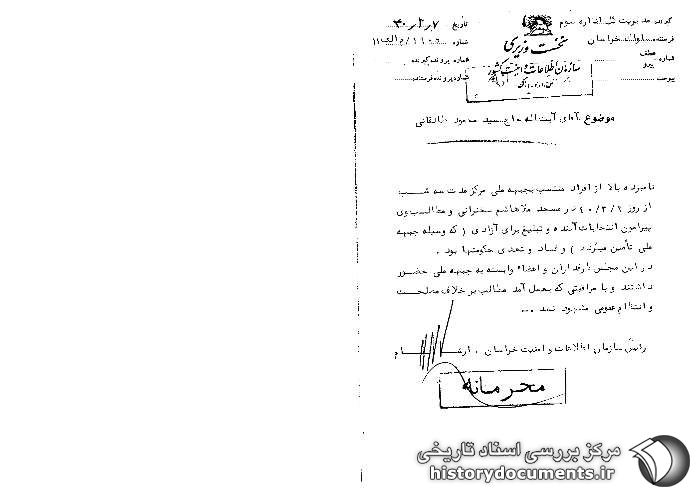 گیرنده مدیریت کل اداره سوم
فرستنده ساواک خراسان
شماره عطف
پیرو
پیوست
نخست وزیری
سازمان اطلاعات و امنیت کشور
تاریخ
شماره
شماره پرونده گیرنده
شماره پرونده فرستنده
موضوع آقای آیت اله حاج سید محمود طالقانی
نامبرده بالا از افراد منتسب بجبهه ملی مرکز مدت سه شب
از روز ۴۰/۳/۲ در مسجد ملاهاشم سخنرانی و مطالب وی
پیرامون انتخابات آینده و تبلیغ برای آزادی ( که وسیله جبهه
ملی تأمین میگردد ) و فساد و تعدی حکومتها بود .
در این مجلس طرفداران و اعضاء وابسته به جبهه ملی حضور
داشتند و با مراقبتی که بعمل آمد مطالب بر خلاف مصلحت
و انتظام عمومی مشهود نشد ...
رئیس سازمان اطلاعات و امنیت خراسان .
محرمانه
مرکز بررسی اسناد تاریخی
historydocuments.ir